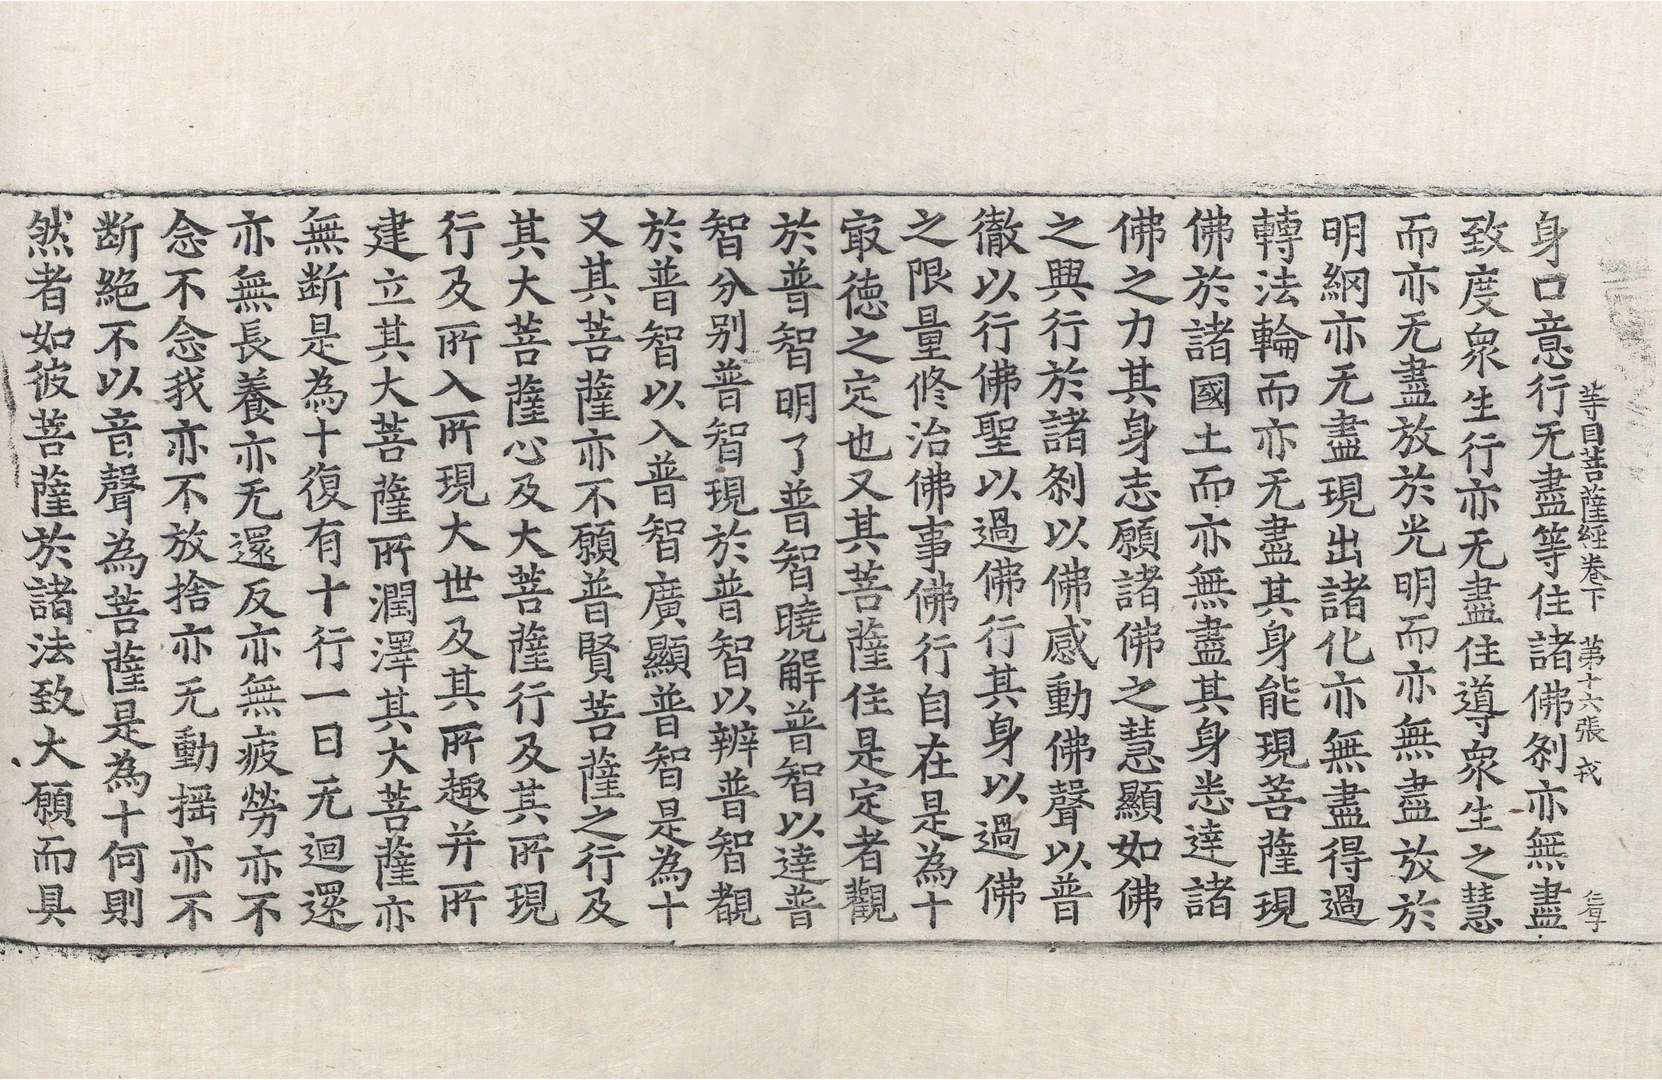 等目菩薩經卷下　第十六張　戎
身口意行无盡等住諸佛刹亦無盡
致度衆生行亦无盡住導衆生之慧
而亦无盡放於光明而亦無盡放於
明網亦无盡現出諸化亦無盡得過
轉法輪而亦无盡其身能現菩薩現
佛於諸國土而亦無盡其身悉達諸
佛之力其身志願諸佛之慧顯如佛
之興行於諸刹以佛感動佛聲以普
徹以行佛聖以過佛行其身以過佛
之限量修治佛事佛行自在是為十
㝡德之定也又其菩薩住是定者觀
於普智明了普智曉解普智以達普
智分别普智現於普智以辨普智觀
於普智以入普智廣顯普智是為十
又其菩薩亦不願普賢菩薩之行及
其大菩薩心及大菩薩行及其所現
行及所入所現大世及其所趣并所
建立其大菩薩所潤澤其大菩薩亦
無断是為十復有十行一曰无迴還
亦無長養亦无還反亦無疲勞亦不
念不念我亦不放捨亦无動揺亦不
断絕不以音聲為菩薩是為十何則
然者如彼菩薩於諸法致大願而具